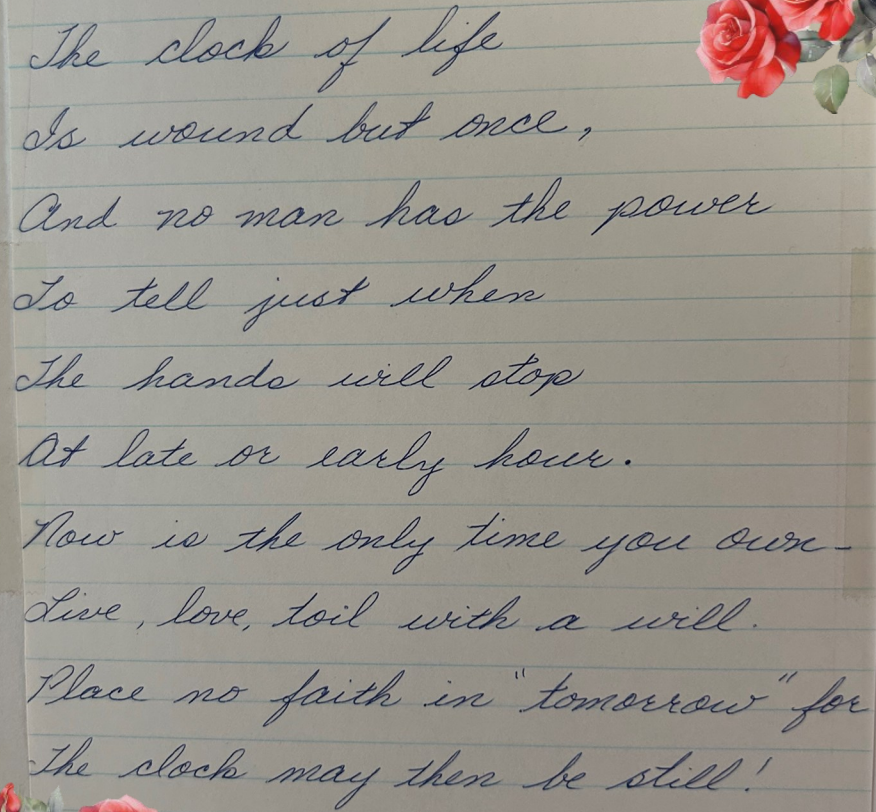 The clock of life
Is wound but once,
And no man has the power
To tell just when
The hands will stop
At late or early hour.
Now is the only time you own-
Live, love, toil with a will.
Place no faith in "tomorrow" for
The clock may then be still!